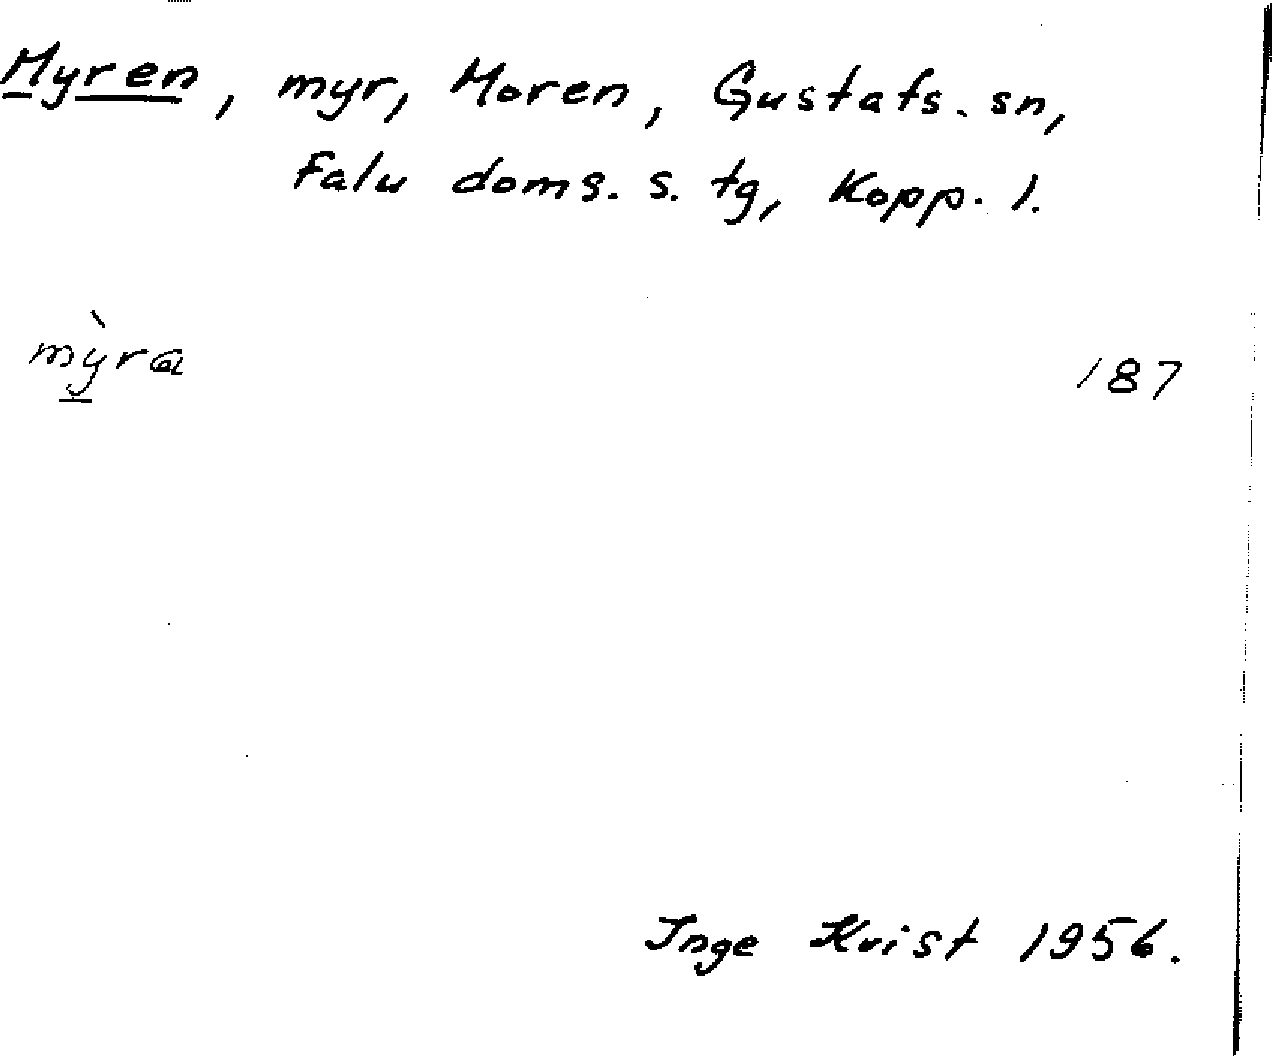 Myren, myr, Moren, Gustafs. sn,
Falu doms. s. tg, Kopp. l.
mỳra 187
Inge Kvist 1956.